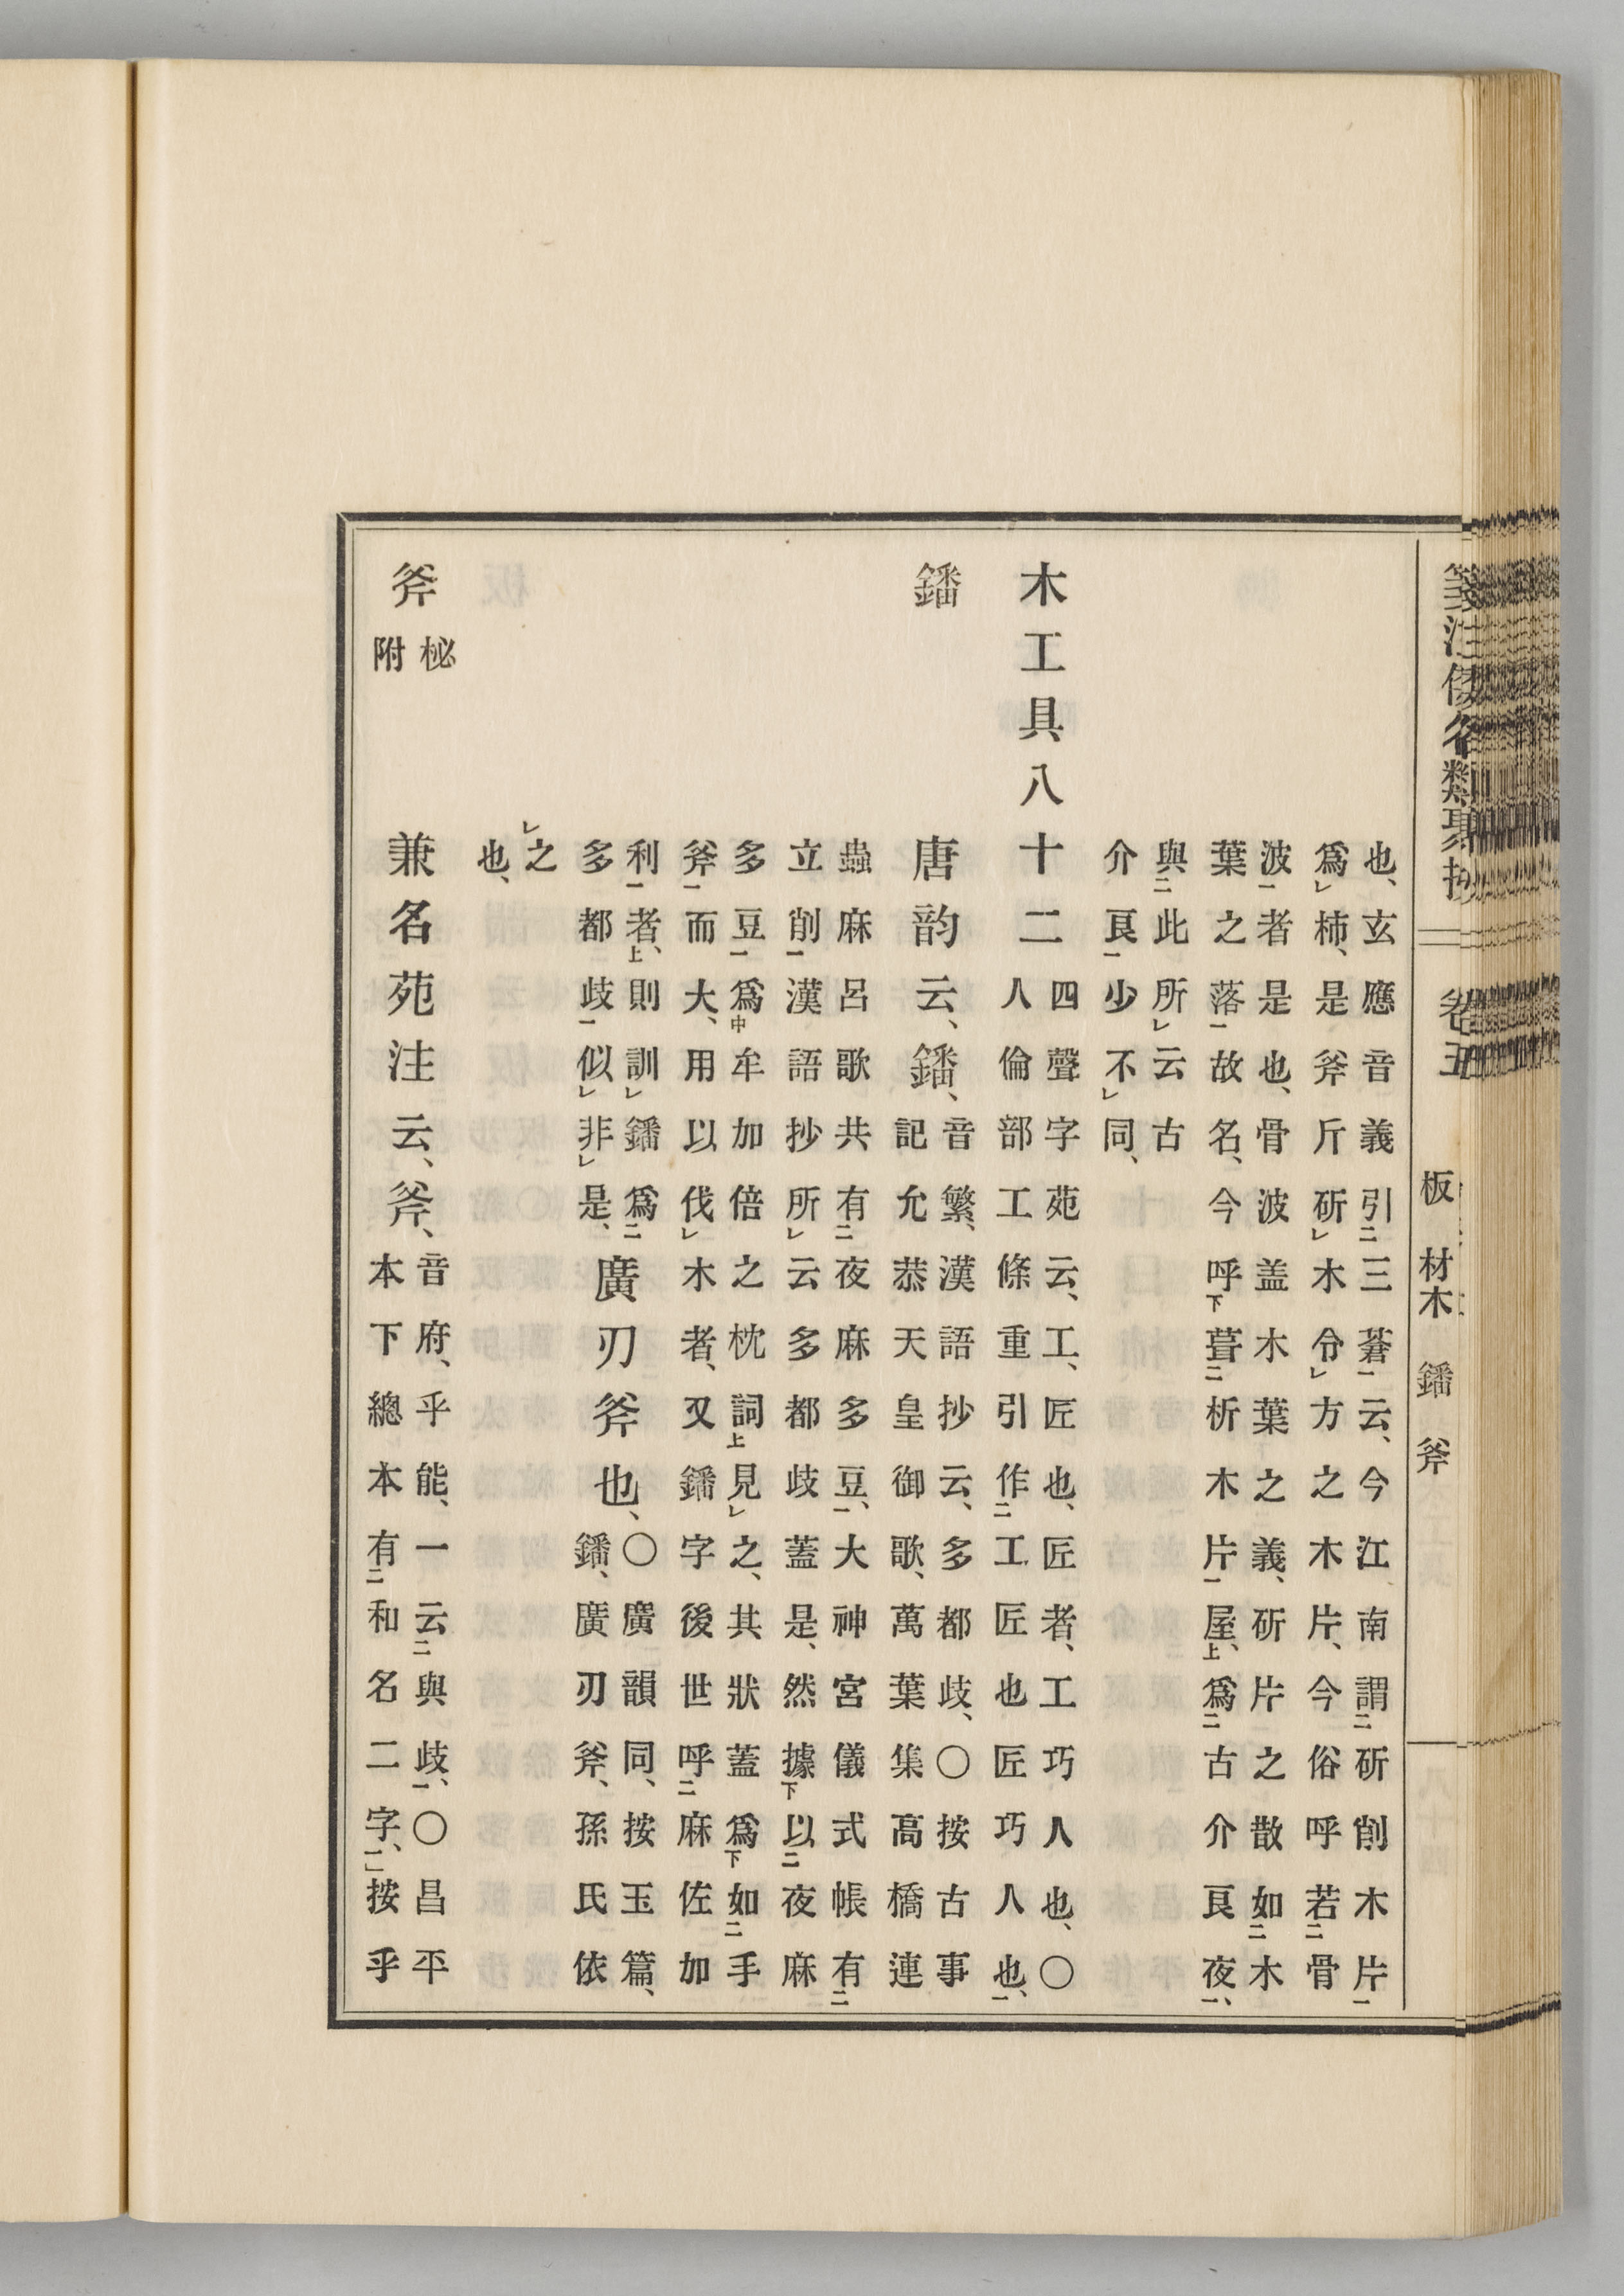 箋注倭名類聚抄 卷五 板 材木 鐇 斧
也、玄應音義引二三蒼一云、今江南謂二斫削木片一
爲レ柿、是斧斤斫レ木分レ方之木片、今俗呼若二骨
波一者是也、骨波盖木葉之義、斫片之散如二木
葉之落一故名、今呼下葺二析木片一屋上、爲二古介良夜一、
與二此所レ云古
介良一少不レ同、
木工具八十二 四聲字苑云、工、匠也、匠者、工巧人也、〇
人倫部工條重引作二工匠也匠巧人也一、
鐇
唐韵云、鐇、音繁、漢語抄云、多都歧、〇按古事
記允恭天皇御歌、萬葉集高橋連
蟲麻呂歌共有二夜麻多豆一、大神宮儀式帳有二
立削一漢語抄所レ云多都歧蓋是、然據下以二夜麻
多豆一爲中牟加倍之枕詞上見レ之、其狀蓋爲下如二手
斧一而大、用以伐レ木者、又鐇字後世呼二麻佐加
利一者上、則訓レ鐇爲二
多都歧一似レ非レ是、
廣刃斧也、〇廣韻同、按玉篇、
鐇、廣刃斧、孫氏依
レ之
也、
斧 柲附
兼名苑注云、斧、音府、乎能、一云二與歧一、〇昌平
本下總本有二和名二字一、按乎